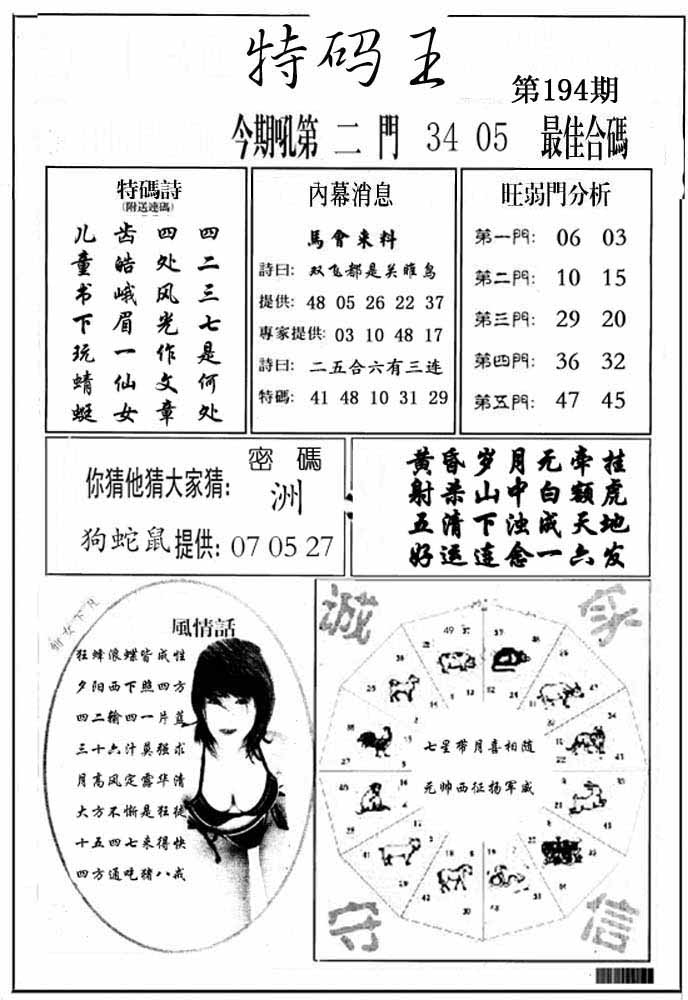 特码王
第194期
今期吼第 二 門 34 05 最佳合碼
特碼詩
(附送連碼)
儿童书下玩蜻蜓
齿皓峨眉一仙女
四处风光作文章
四二三七是何处
內幕消息
馬會来料
詩曰: 双飞都是关雎鸟
提供: 48 05 26 22 37
專家提供: 03 10 48 17
詩曰: 二五合六有三连
特碼: 41 48 10 31 29
旺弱門分析
第一門: 06 03
第二門: 10 15
第三門: 29 20
第四門: 36 32
第五門: 47 45
密碼
你猜他猜大家猜: 洲
狗蛇鼠提供: 07 05 27
黄昏岁月无牵挂
射杀山中白额虎
五清下浊成天地
好运连念一六发
女下凡
風情話
狂蜂浪蝶皆成性
夕阳西下照四方
四二输四一片蓝
三十六计莫强求
月高风定露华清
大方不惭是狂徒
十五四七来得快
四方通吃猪八戒
诚
家
七星带月喜相随
元帅西征扬军威
守
信